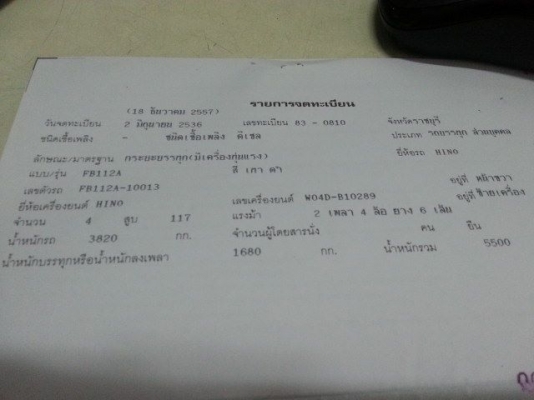 รายการจดทะเบียน
(18 ธันวาคม 2557)
วันจดทะเบียน 2 มิถุนายน 2536 เลขทะเบียน 83 - 0810 จังหวัดราชบุรี
ชนิดเชื้อเพลิง - ชนิดเชื้อเพลิง ดีเซล ประเภท รถบรรทุก ส่วนบุคคล
ลักษณะ/มาตรฐาน กระบะบรรทุก(มีเครื่องทุ่นแรง) ยี่ห้อรถ HINO
แบบ/รุ่น FB112A สี เทา ดำ
เลขตัวรถ FB112A-10013 อยู่ที่ หน้าขวา
ยี่ห้อเครื่องยนต์ HINO เลขเครื่องยนต์ W04D-B10289 อยู่ที่ ซ้ายเครื่อง
จำนวน 4 สูบ 117 แรงม้า 2 เพลา 4 ล้อ ยาง 6 เส้น
น้ำหนักรถ 3820 กก. จำนวนผู้โดยสารนั่ง คน ยืน
น้ำหนักบรรทุกหรือน้ำหนักลงเพลา 1680 กก. น้ำหนักรวม 5500